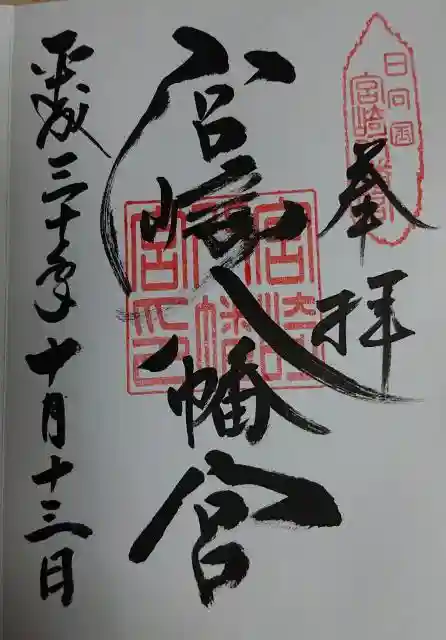 奉拝
日向国
宮崎八幡宮
宮崎八幡宮印
宮崎八幡宮
平成三十年十月十三日